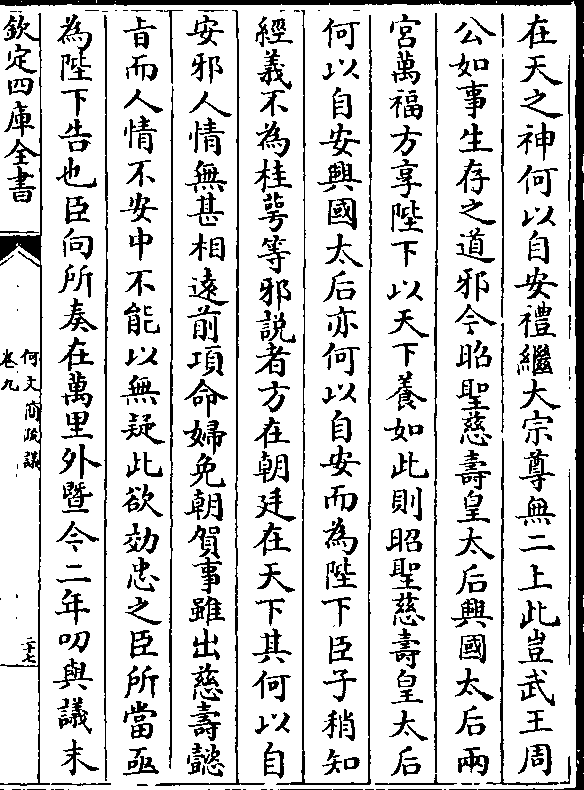 在天之神何以自安禮繼大宗尊無二上此豈武王周
公如事生存之道邪今昭聖慈壽皇太后興國太后兩
宮萬福方享陛下以天下養如此則昭聖慈壽皇太后
何以自安興國太后亦何以自安而為陛下臣子稍知
經義不為桂萼等邪説者方在朝廷在天下其何以自
安邪人情無甚相遠前項命婦免朝賀事雖出慈壽懿
㫖而人情不安中不能以無疑此欲効忠之臣所當亟
為陛下告也臣向所奏在萬里外暨今二年叨與議末
欽定四庫全書
何文簡疏議
卷九
二十七